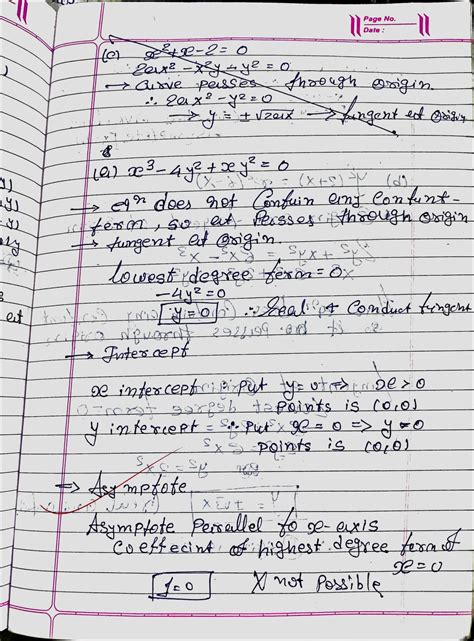 Page No.
Date :
(c) x² + x - 2 = 0
2ax² - x²y + y² = 0
→ Curve passes through origin
∴ 2ax² - y² = 0
→ y = ± √2ax → tangent at origin
(a) x³ - 4y² + xy² = 0
→ eqⁿ does not Contain any Contant-
term, so it Passes through origin
→ tangent at origin.
lowest degree term = 0
-4y² = 0
y = 0 ∴ Real & Conduct tangent
→ Intercept
x intercept : Put y = 0 ⇒ x > 0
points is (0,0)
y intercept = Put x = 0 ⇒ y = 0
points is (0,0)
⇒ Asymptote
Asymptote Parallel to x-axis
Coeffecint of highest degree term of
x = 0
1 = 0 X not Possible